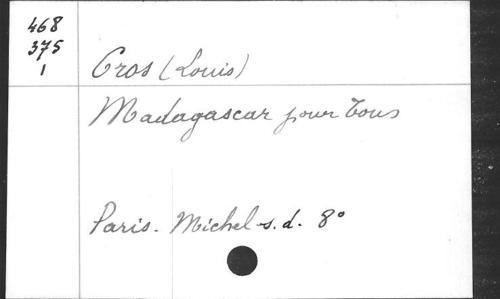 468
375
1
Cros (Louis)
Madagascar pour Tous
Paris. Michel s.d. 8°